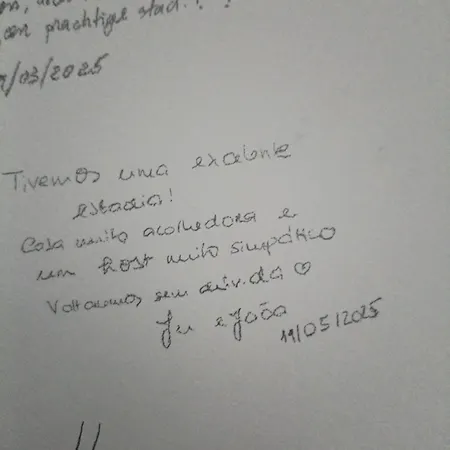 een prachtige stad!!
/03/2025
Tivemos uma excelente
estadia!
Casa muito acolhedora e
um host muito simpático
Voltaremos sem dúvida ♡
Ju e João
19/05/2025